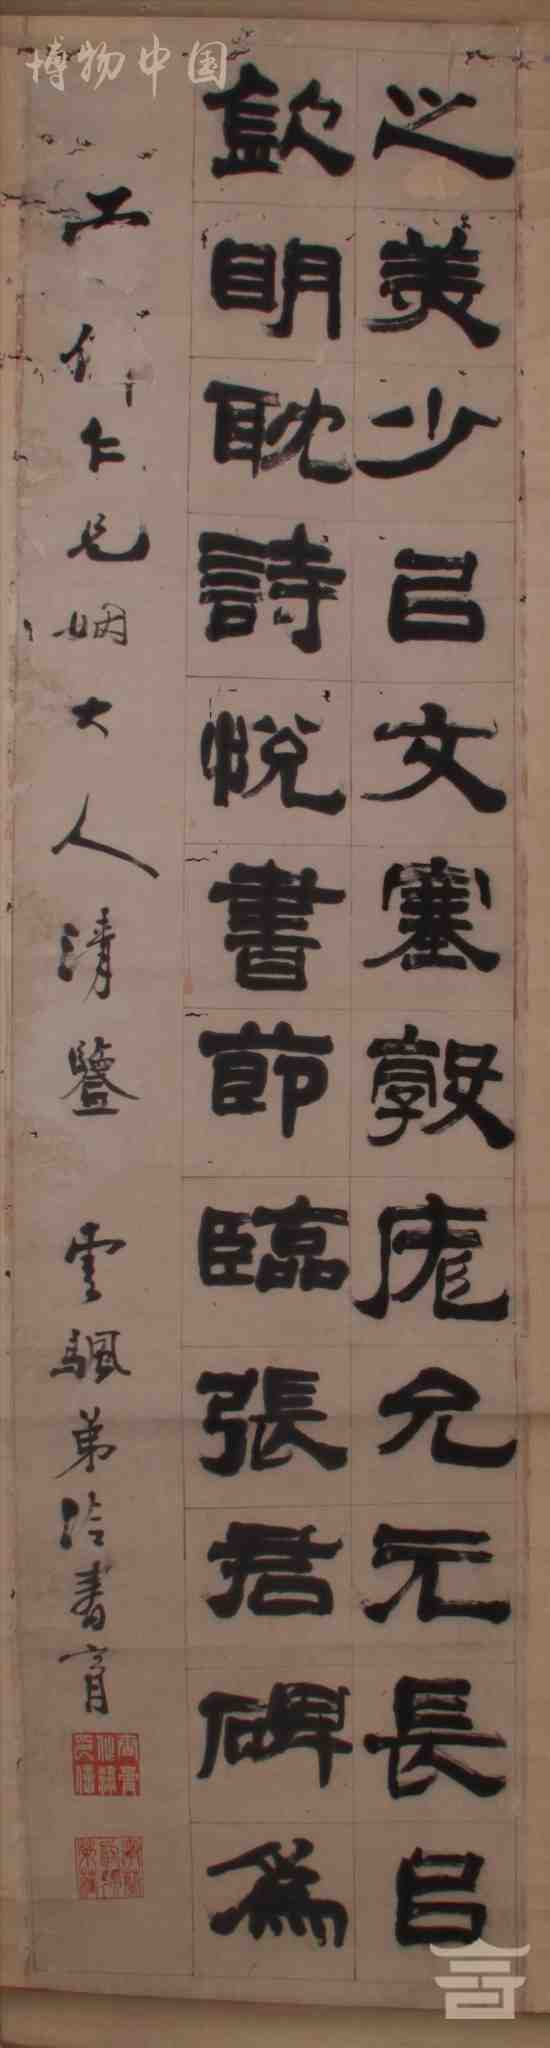 博物中国
之美少㠯文塞敦庬允元長㠯
欽明耽詩悅書節臨張君碑為
工仁兄姻大人清鑒 雲颿弟書